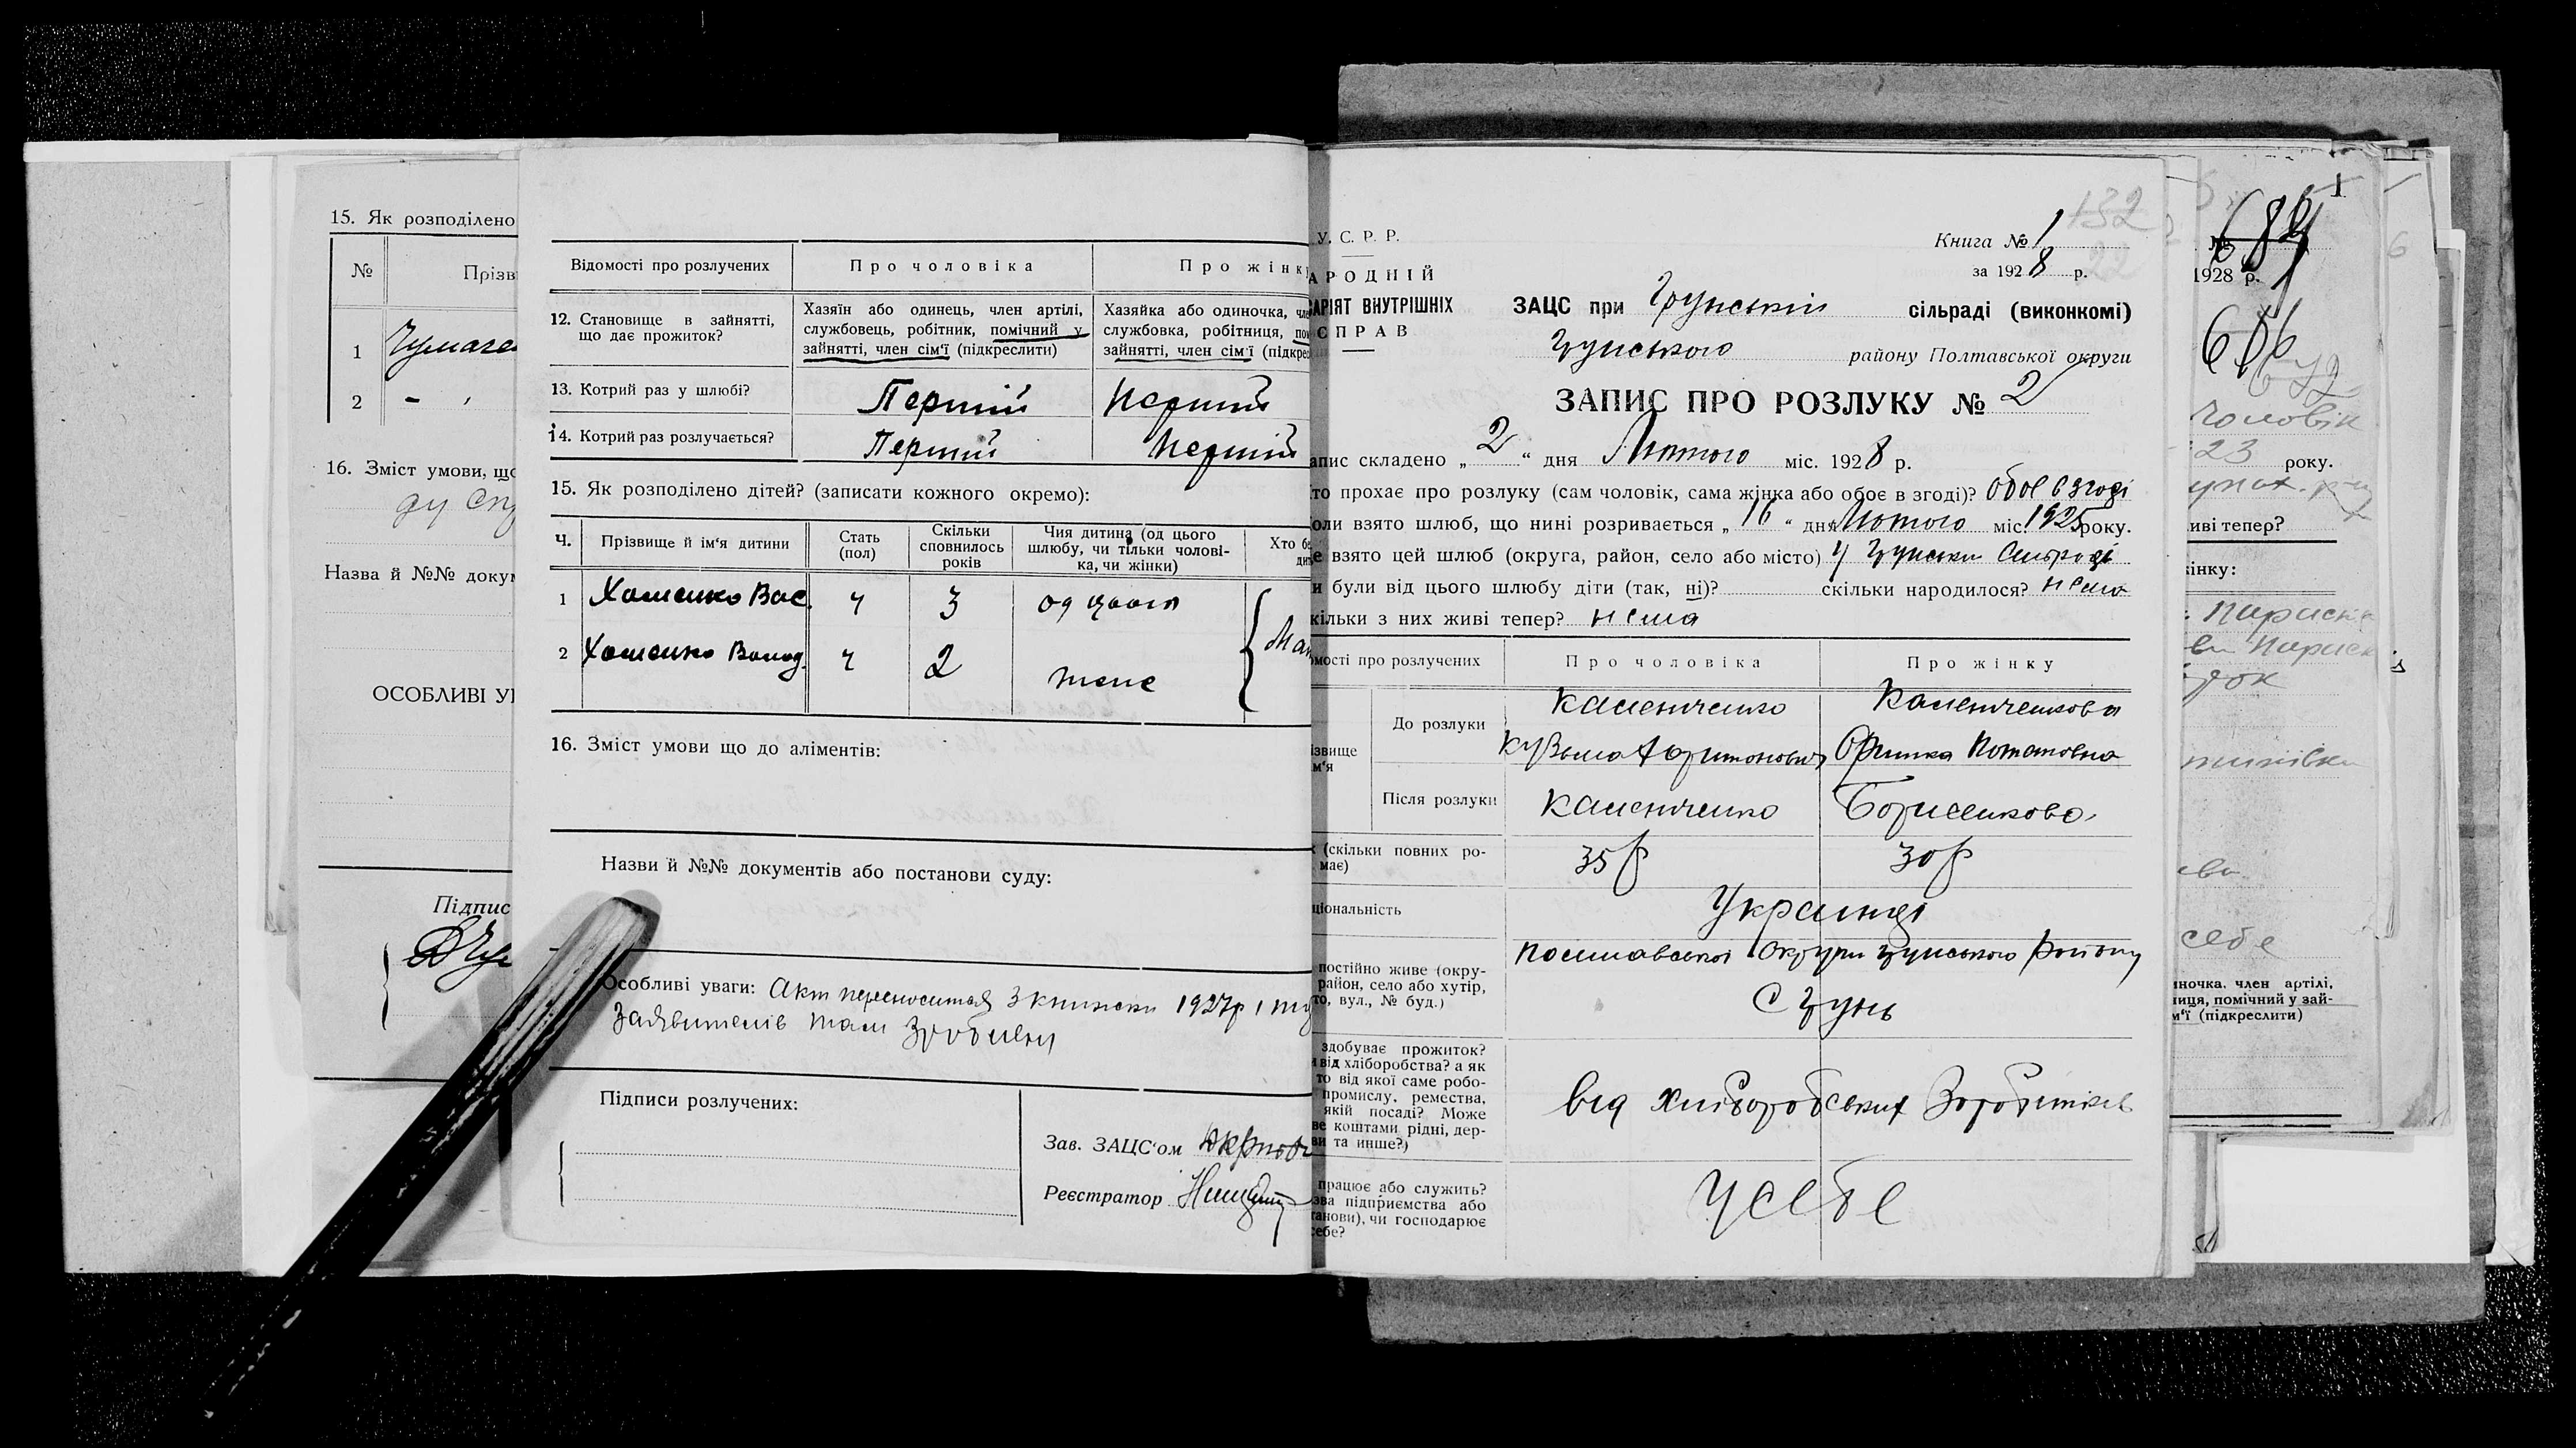 15. Як розподілено
№ Прізв
1
2 - ,
16. Зміст умови, що
ду
Назва й №№ докум
ОСОБЛИВІ УВ
Підпис
Відомості про розлучених
Про чоловіка
Про жінк
12. Становище в зайнятті, що дає прожиток?
Хазяїн або одинець, член артілі,
службовець, робітник, помічний у
зайнятті, член сім'ї (підкреслити)
Хазяйка або одиночка, чле
службовка, робітниця, по
зайнятті, член сім'ї (підкре
13. Котрий раз у шлюбі?
Першій
Першій
14. Котрий раз розлучається?
Першій
Першій
15. Як розподілено дітей? (записати кожного окремо):
Ч.
Прізвище й ім'я дитини
Стать
(пол)
Скільки
сповнилось
років
Чия дитина (од цього
шлюбу, чи тільки чолові-
ка, чи жінки)
Хто бе
дит
1 Хоменко Вас. ч 3 од цього
2 Хоменко Волод. ч 2 теже
Мат
16. Зміст умови що до аліментів:
Назви й №№ документів або постанови суду:
Особливі уваги: Акт переноситься З книжки 1927р і
Заявителів там Зроблені
Підписи розлучених:
Зав. ЗАЦС'ом
Реєстратор
У. С. Р. Р.
АРОДНІЙ
АРІЯТ ВНУТРІШНІХ
СПРАВ
132
22
Книга № 1
за 1928 р.
ЗАЦС при Грунській сільраді (виконкомі)
Грунського району Полтавської округи
ЗАПИС ПРО РОЗЛУКУ № 2
апис складено „ 2 “ дня Лютого міс. 1928 р.
то прохає про розлуку (сам чоловік, сама жінка або обоє в згоді)? Обоє в згоді
оли взято шлюб, що нині розривається „ 16 “ дня Лютого міс. 1925 року.
е взято цей шлюб (округа, район, село або місто) У Грунськи Сільраді
и були від цього шлюбу діти (так, ні)? скільки народилося? нема
кільки з них живі тепер? нема
мості про розлучених
Про чоловіка
Про жінку
ізвище
м'я
До розлуки
Каленченко
Кузьма Харитонович
Каленченкова
Оришка Потаповна
Після розлуки
Каленченко
Борисенкова
к (скільки повних ро-
має)
35 р
30 р
ціональність
Українці
постійно живе (окру-
район, село або хутір,
то, вул., № буд.)
Полтавської Округи Грунського Району
С Грунь
здобуває прожиток?
и від хліборобства? а як
то від якої саме робо-
промислу, ремества,
якій посаді? Може
ве коштами рідні, дер-
ви та инше?)
Від хліборобських Заробітків
працює або служить?
зва підприємства або
танови), чи господарює
себе?
У себе
1
№ 684
1928 р.
чоловік
23 року.
иві тепер?
інку:
Параска
себе
иночка, член артілі,
иця, помічний у зай-
м'ї (підкреслити)